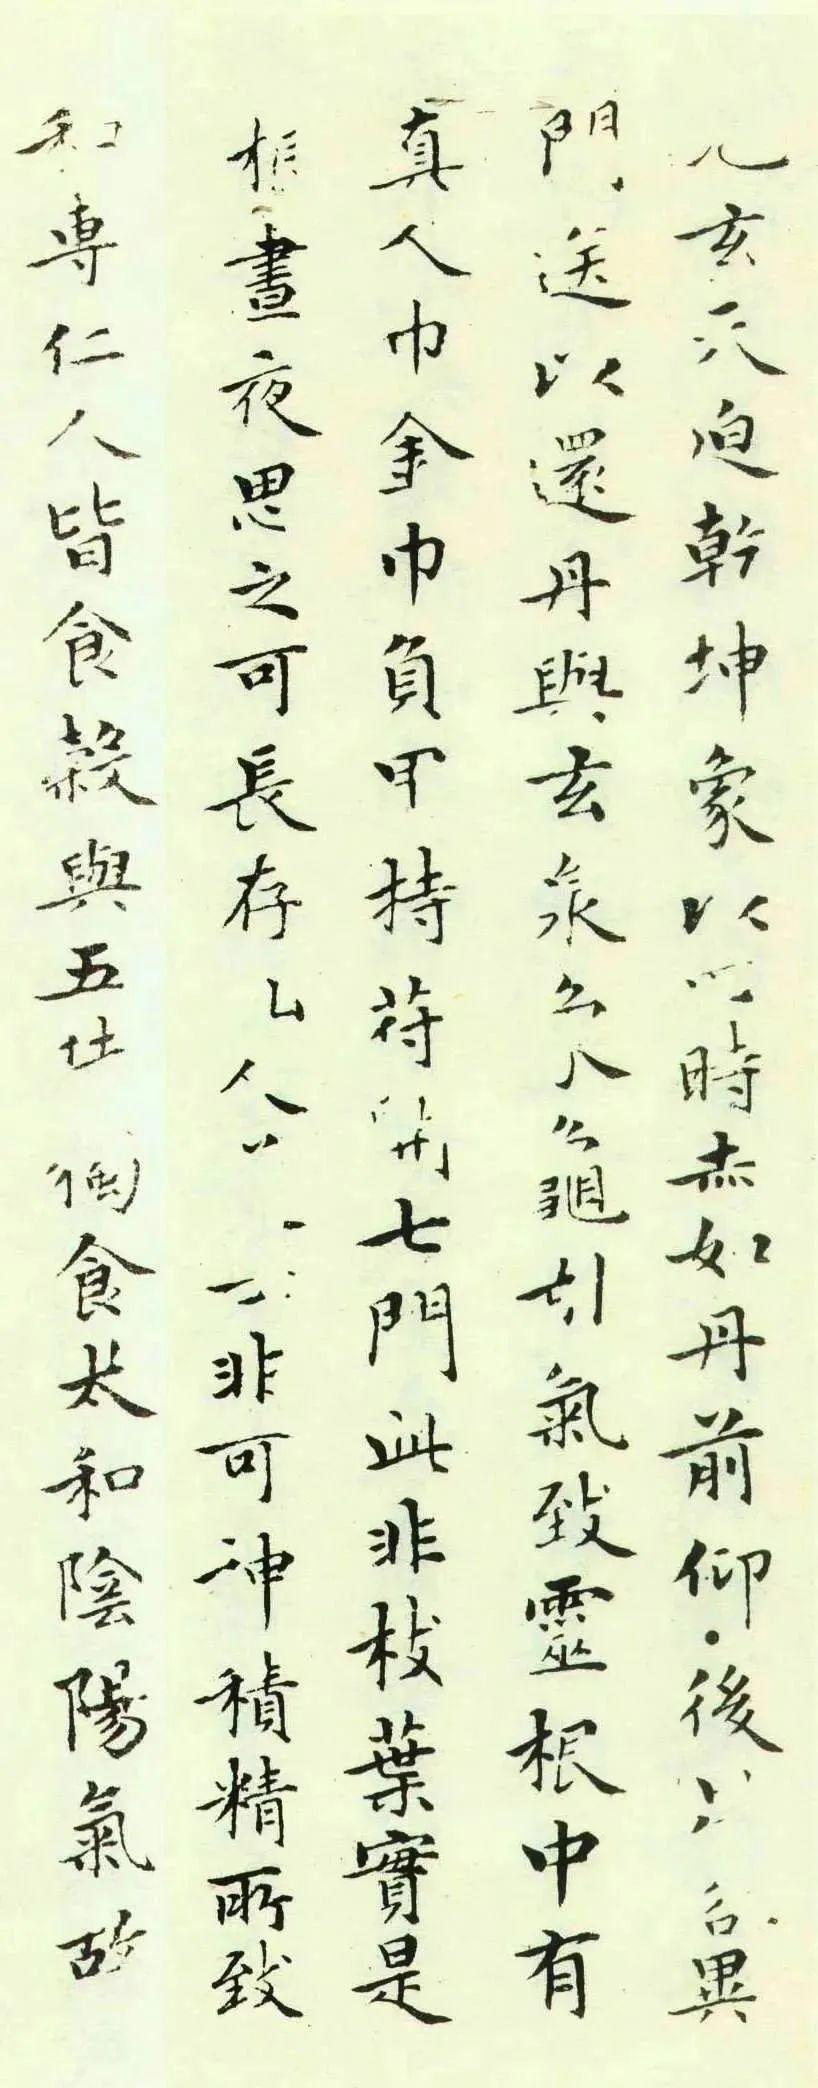 玄 迫乾坤象以 時 如丹前仰 後 異
門送以還丹與玄泉 龜 氣致靈根中有
真人巾金巾負甲持苻開七門此非枝葉實是
根晝夜思之可長存 人 非可神積精所致
和專仁人皆食穀與五 食太和陰陽氣故